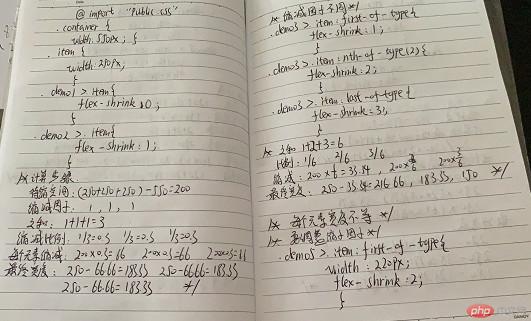 @ import "Public.css"
.container {
width: 550px; }
.item {
width: 250px;
}
.demo1 > .item {
flex-shrink: 0;
}
.demo2 > .item{
flex-shrink: 1;
}
/* 计算步骤
(250+250+250)-550=200
缩放因子: 1, 1, 1
之和: 1+1+1=3
缩减比例: 1/3=0.3 1/3=0.3 1/3=0.3
每个元素缩减: 200×0.3=66 200×0.3=66 200×0.3=66
最终宽度: 250-66.66=183.33 250-66.66=183.33
250-66.66=183.33 */
/* 缩减因子不同 */
.demo3 > .item:first-of-type{
flex-shrink: 1;
}
.demo3 > .item:nth-of-type(2){
flex-shrink: 2;
}
.demo3 > .item:last-of-type{
flex-shrink: 3;
}
/* 之和 1+2+3=6
比例: 1/6 2/6 3/6
缩减: 200×1/6=33.34, 200×2/6 200×3/6
最终宽度: 250-33.34=216.66, 183.33, 150 */
/* 每个元素宽度不等 */
.demo5 > .item:first-of-type{
width: 220px;
flex-shrink: 2;
}
php